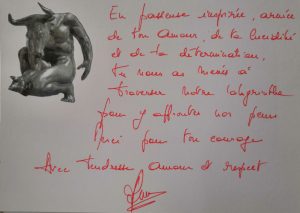 En passeuse inspirée, armée
de ton amour, de ta lucidité
et de ta détermination,
tu nous as menés à
traverser notre labyrinthe
pour y affronter nos peurs
Merci pour ton courage
Avec tendresse amour et respect